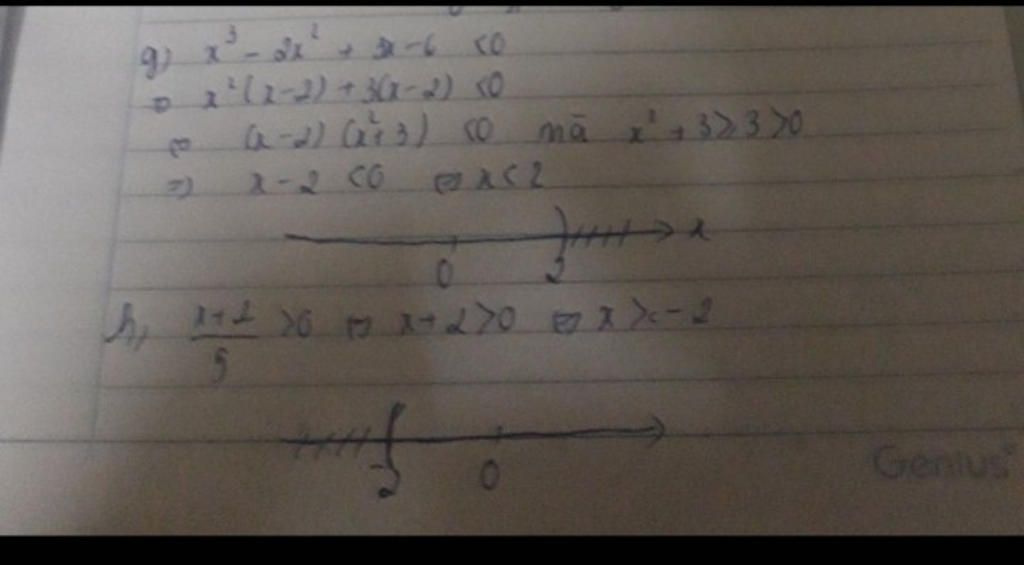 g) x³ - 2x² + 3x - 6 < 0
⇔ x²(x-2) + 3(x-2) < 0
⇔ (x-2)(x²+3) < 0 mà x² + 3 ≥ 3 > 0
⇒ x - 2 < 0 ⇔ x < 2
0 2 x
h, (x+2)/5 > 0 ⇔ x + 2 > 0 ⇔ x > -2
-2 0
Genius